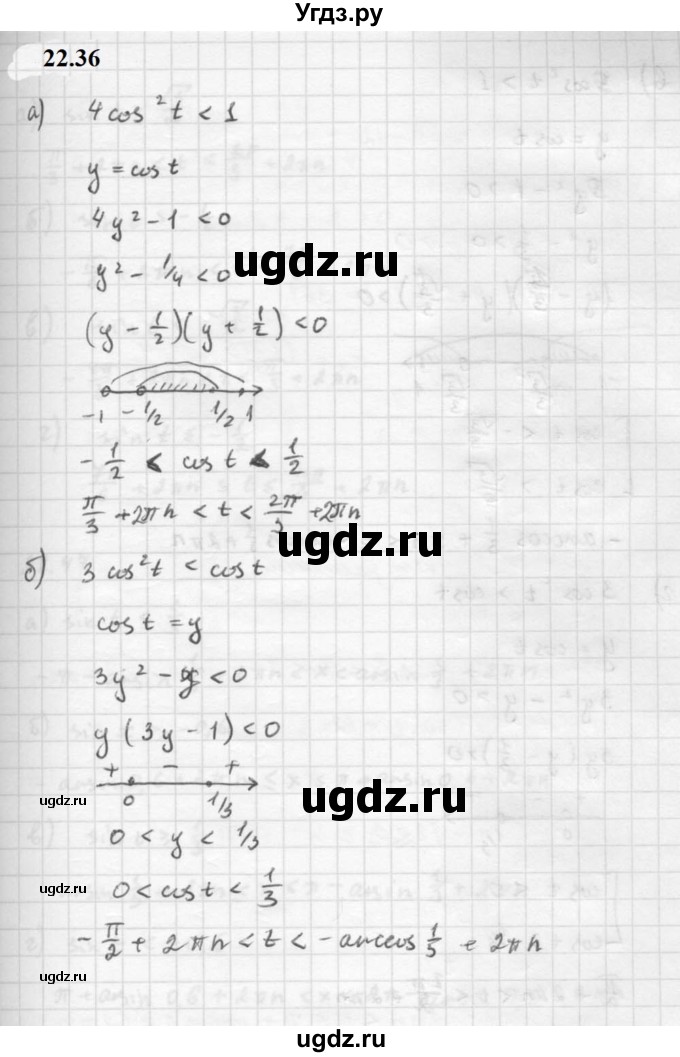 Угдз.ру
22.36
а) 4 cos² t < 1
y = cos t
4y² - 1 < 0
ugdz.ru
y² - 1/4 < 0
(y - 1/2)(y + 1/2) < 0
-1 -1/2 1/2 1
-1/2 < cos t < 1/2
π/3 + 2πn < t < 2π/3 + 2πn
ugdz.ru
б) 3 cos² t < cos t
cos t = y
3y² - y < 0
y (3y - 1) < 0
+ - +
ugdz.ru 0 1/3 ugdz.ru
0 < y < 1/3
ugdz.ru 0 < cos t < 1/3
-π/2 + 2πn < t < - arccos 1/5 + 2πn
ugdz.ru
ugdz.ru